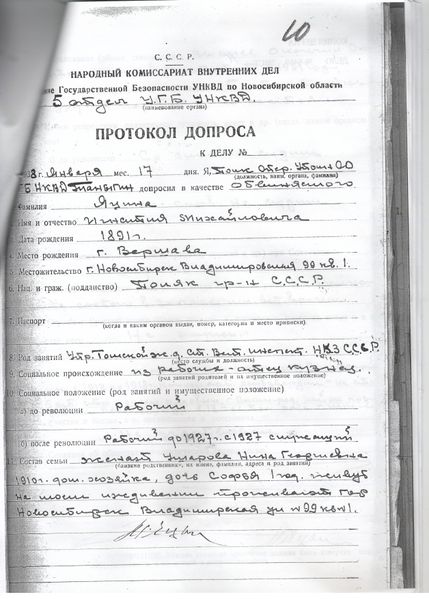 10
С. С. С. Р.
НАРОДНЫЙ КОМИССАРИАТ ВНУТРЕННИХ ДЕЛ
ние Государственной Безопасности УНКВД по Новосибирской области
5 отдел У.Г.Б. УНКВД.
(наименование органа)
ПРОТОКОЛ ДОПРОСА
К ДЕЛУ №
8 г. Января мес. 17 дня. Я,
(должность, наим. органа, фамилия)
допросил в качестве обвиняемого
Фамилия Яцина
Имя и отчество Михайловича
Дата рождения 1891г.
Место рождения г. Варшава
5 Местожительство г. Новосибирск Владимировская 99 кв. 1.
6. Нац. и граж. (подданство) Поляк гр-н С.С.С.Р.
7. Паспорт
(когда и каким органом выдан, номер, категория и место приписки)
8. Род занятий Упр. Томской ж.д. Ст. Вет. инспект. НКЗ СССР
(место службы и должность)
9. Социальное происхождение из рабочих - отец кузнец
(род занятий родителей и их имущественное положение)
10 Социальное положение (род занятий и имущественное положение)
а) до революции Рабочий
б) после революции Рабочий до 1927г. с 1927 служащий
Состав семьи женат Нина Георгиевна
(близкие родственники, их имена, фамилии, адреса и род занятий)
1910г. дом. хозяйка, дочь Софья 1 год. живут
на моем иждивении проживают гор
Новосибирск Владимирская ул №99 кв №1.